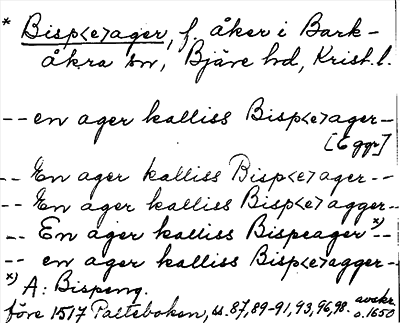 * Bisp<e>ager, f. åker i Bark-
åkra sn, Bjäre hd, Krist. l.
-- en ager kalliss Bisp<e>ager-
[Eggr]
-- En ager kalliss Bisp<e>ager--
-- En ager kalliss Bisp<e>agger--
-- En ager kalliss Bispeager x) --
-- en ager kalliss Bisp<e>agger--
x) A: Bispeng.
före 1517 Palteboken, ss. 87, 89-91, 93, 96, 98. avskr. o. 1650